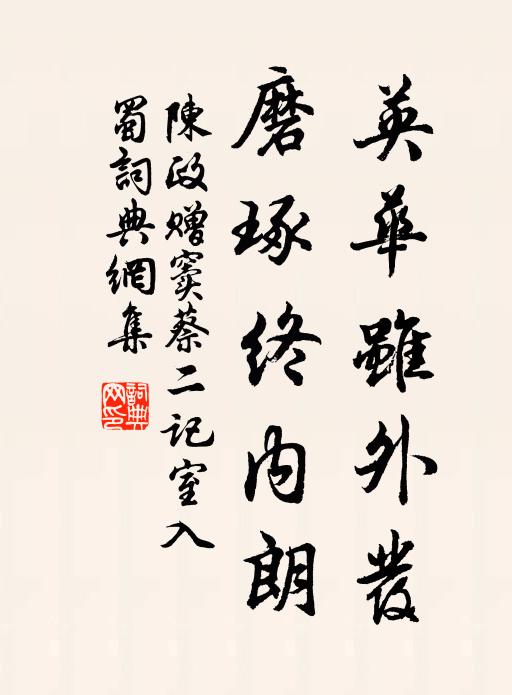 英華雖外發
磨琢終内朗
陳政贈竇蔡二記室入
蜀詞典網集
詞典
网印